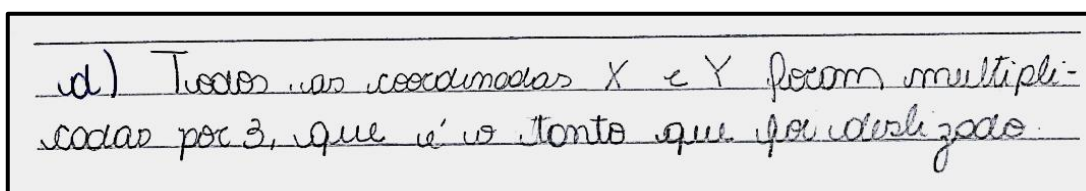 d) Todos as coordenadas X e Y foram multipli-
cadas por 3, que é o tanto que foi deslizado.